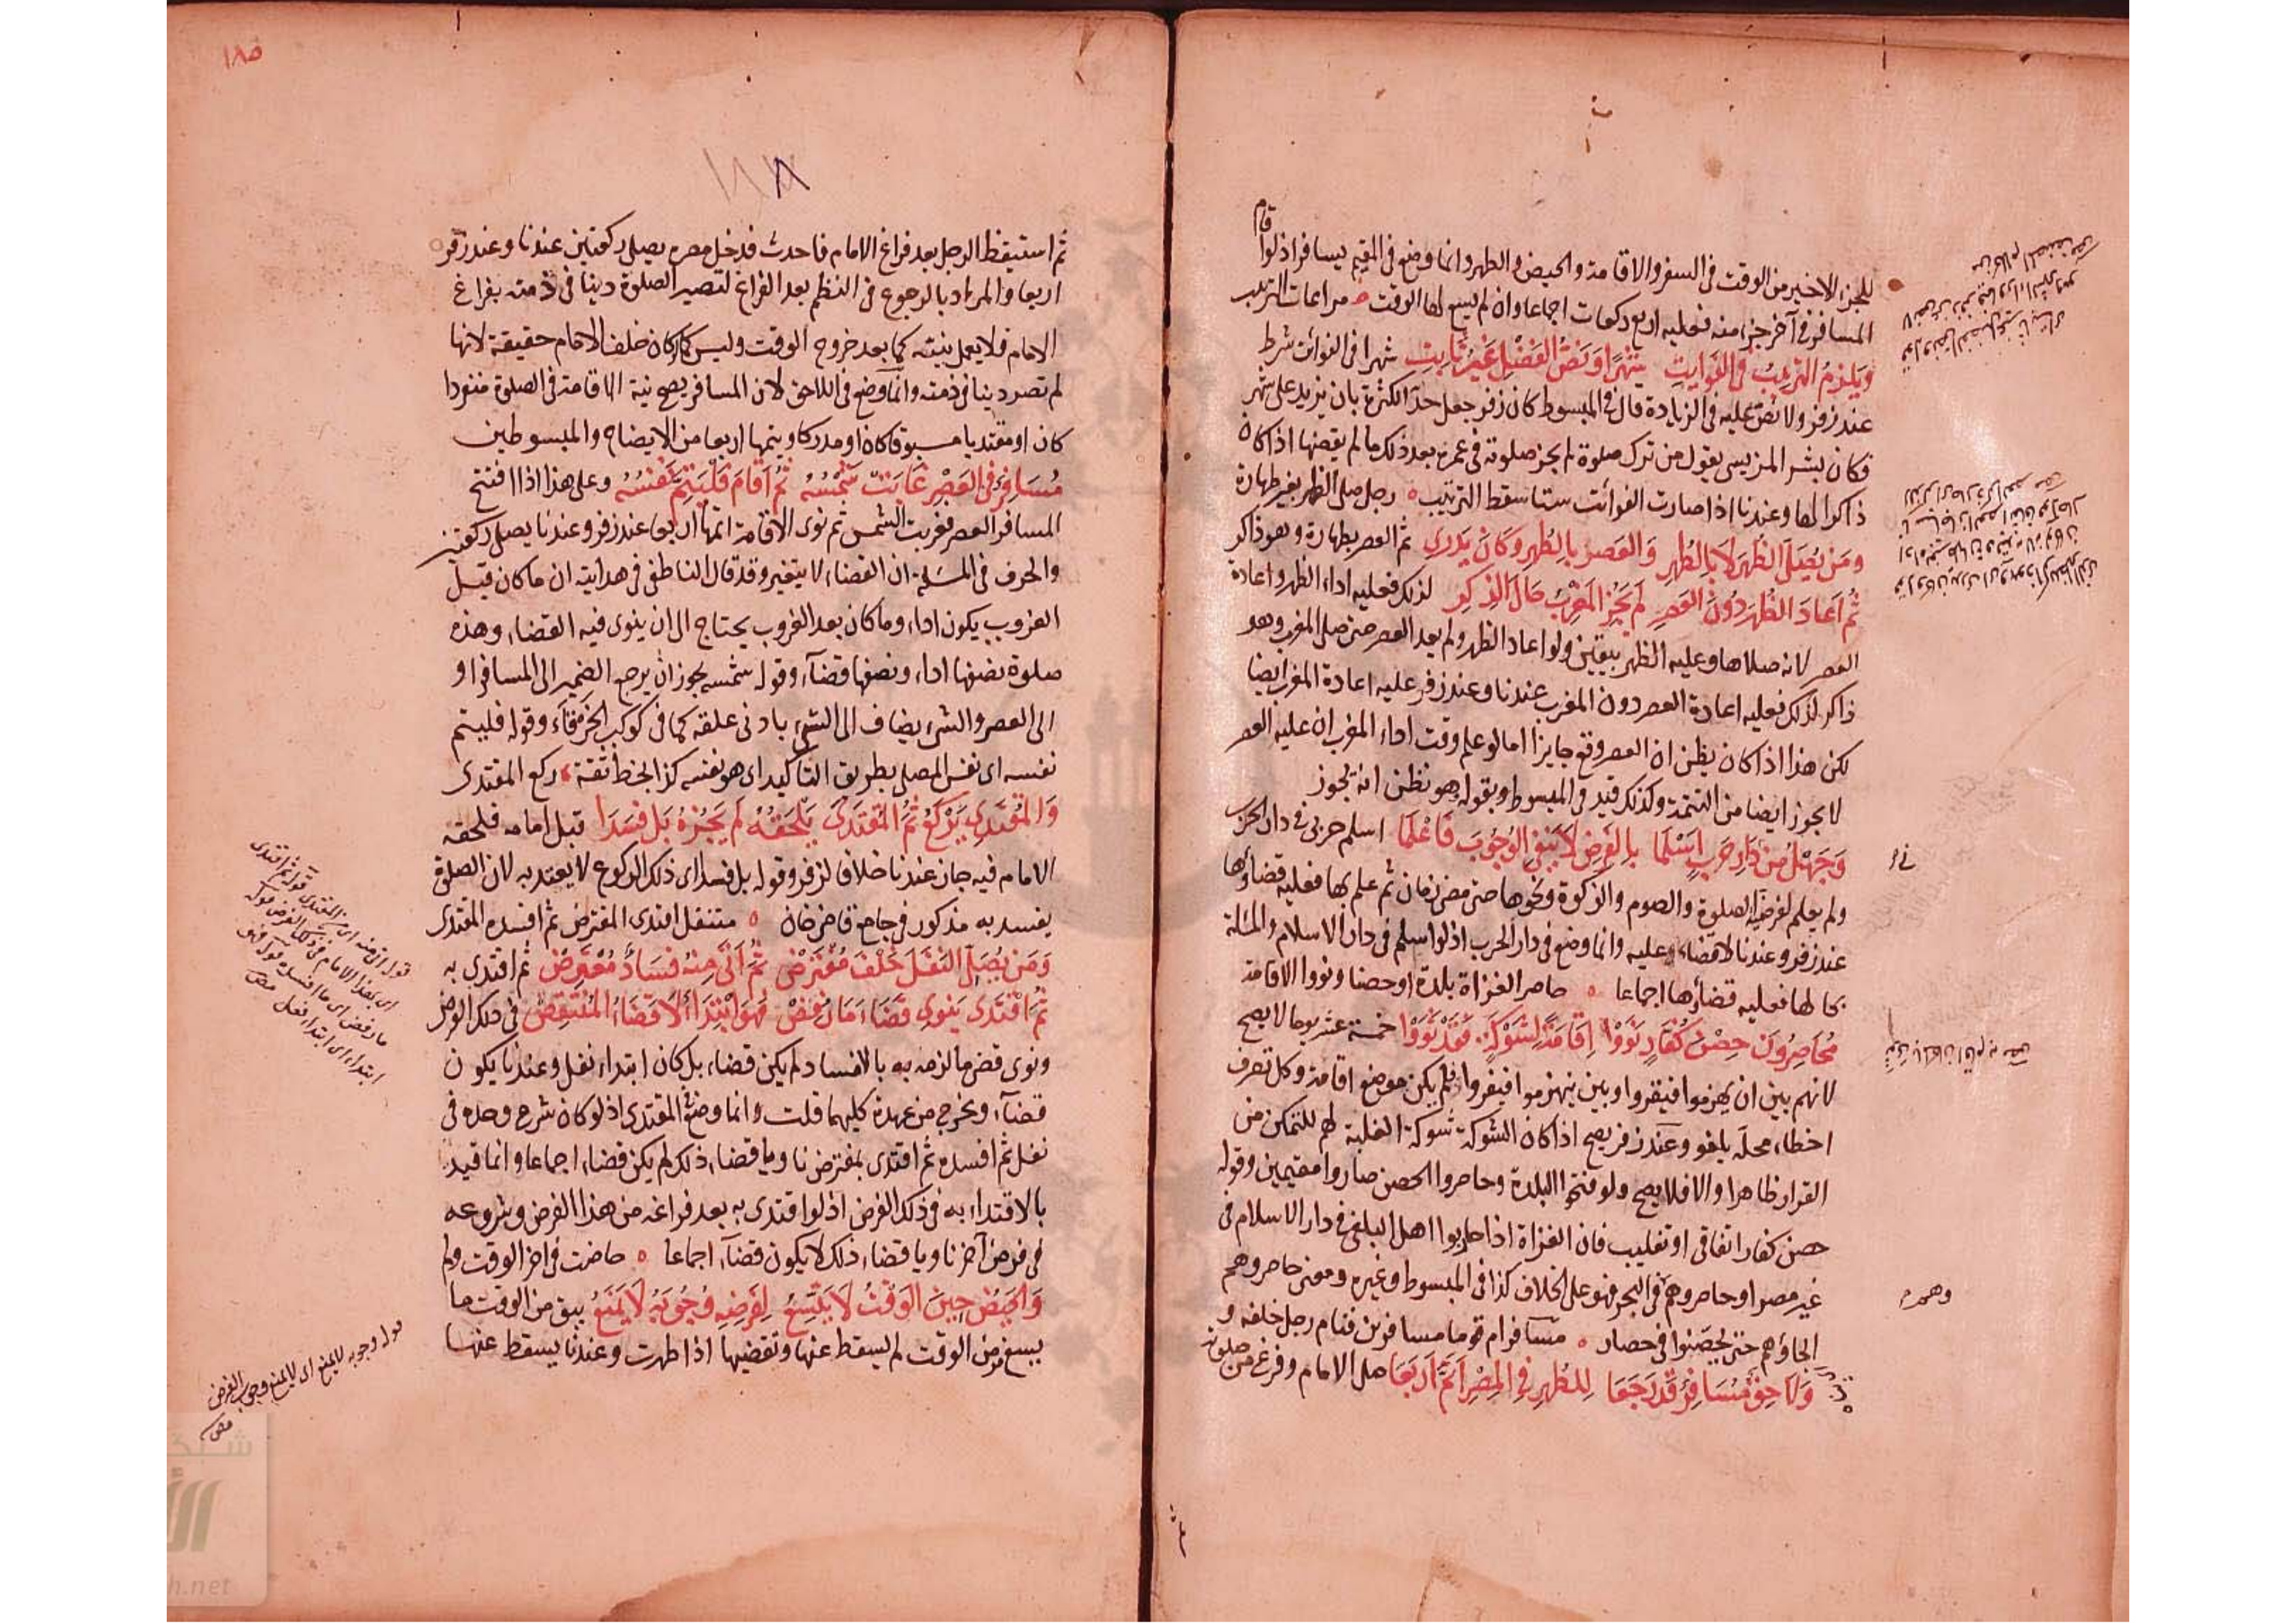 للجزء الاخير من الوقت فى السفر والاقامة والحيض والطهر وانما وضع فى المقيم يسافر اذ لو قام
المسافر فى آخر جزء منه فعليه اربع ركعات اجماعا وان لم يسع لها الوقت مراعات الترتيب
ويلزم الترتيب فى الفوايت شهرا ونص الفضل غير ثابت شهرا فى الفوائت شرط
عند زفر ولا نص عليه فى الزيادة قال فى المبسوط كان زفر جعل حد الكثرة بان يزيد على شهر
فكان بشر المريسى يقول من ترك صلوة لم يجز صلوته فى عمره بعد ذلك ما لم يقضها اذا كان
ذاكرا لها وعندنا اذا صارت الفوائت ستا سقط الترتيب رجل صلى الظهر بغير طهارة
ومن يصلى الظهر لا بالطهر والعصر بالطهر وكان يدرى ثم العصر بطهارة وهو ذاكر
ثم اعاد الظهر دون العصر لم يجز المغرب حال الذكر لذلك فعليه اداء الظهر واعادة
العصر لانه صلاها وعليه الظهر بيقين ولو اعاد الظهر ولم يعد العصر حتى صلى المغرب وهو
ذاكر لذلك فعليه اعادة العصر دون المغرب عندنا وعند زفر عليه اعادة المغرب ايضا
لكن هذا اذا كان يظن ان العصر وقع جايزا اما لو علم وقت اداء المغرب ان عليه العصر
لا يجوز ايضا من التتمة وكذلك قيد فى المبسوط وبقوله وهو يظن انه يجوز
وجهل من دار حرب اسلما بالفرض لا ينفى الوجوب فاعلما اسلم حربى فى دار الحرب
ولم يعلم لفرضية الصلوة والصوم والزكوة ونحوها حتى مضى زمان ثم علم بها فعليه قضاؤها
عند زفر وعندنا لا قضاء عليه وانما وضع فى دار الحرب اذ لو اسلم فى دار الاسلام والمسئلة
بحالها فعليه قضاؤها اجماعا حاصر الغزاة بلدة او حصنا ونووا الاقامة
محاصرون حصن كفار نووا اقامة لشوكة فقد نووا خمسة عشر يوما لا يصح
لانهم بين ان يهزموا فيقروا وبين ينهزموا فيفروا فلم يكن موضع اقامة وكل تصرف
اخطاء محله يلغو وعند زفر يصح اذا كان الشوكة شوكة الغلبة لهم للتمكن من
القرار ظاهرا والا فلا يصح ولو فتحوا البلدة وحاصروا الحصن صاروا مقيمين وقوله
حصن كفار اتفاقى او تغليب فان الغزاة اذا حاربوا اهل البغى فى دار الاسلام فى
غير مصر او حاصروهم فى البحر فهو على الخلاف كذا فى المبسوط وغيره ومعنى حاصروهم
الجاؤهم حتى يحصنوا فى حصار مسافر ام قوما مسافرين فنام رجل خلفه و
ولاحق مسافر قد رجعا للظهر فى المصر اتم اربعا صلى الامام وفرغ من صلوته
وهمره
١٨٥
١٨٨
ثم استيقظ الرجل بعد فراغ الامام فاحدث فدخل مصره يصلى ركعتين عندنا وعند زفر
اربعا والمراد بالرجوع فى النظم بعد الفراغ لتصير الصلوة دينا فى ذمته بفراغ
الامام فلا يعمل نيته كما بعد خروج الوقت وليس كما كان خلف الامام حقيقة لانها
لم تصر دينا فى ذمته وانما وضع فى اللاحق لان المسافر يصح نية الاقامة فى الصلوة منفردا
كان او مقتديا مسبوقا كان او مدركا ويتمها اربعا من الايضاح والمبسوطين
مسافر فى العصر غابت شمسه ثم اقام فليتم نفسه وعلى هذا اذا افتتح
المسافر العصر فغربت الشمس ثم نوى الاقامة اتمها اربعا عند زفر وعندنا يصلى ركعتين
والحرف فى المسئلة ان القضاء لا يتغير وقد قال الناطفى فى هدايته ان ما كان قبل
الغروب يكون اداء وما كان بعد الغروب يحتاج الى ان ينوى فيه القضاء وهذه
صلوة نصفها اداء ونصفها قضآء وقوله شمسه يجوز ان يرجع الضمير الى المسافر او
الى العصر والشىء يضاف الى الشىء بادنى علقة كما فى كوكب الخرقآء وقوله فليتم
نفسه اى نفس المصلى بطريق التاكيد اى هو نفسه كذا بخط ثقة ركع المقتدى
والمقتدى يركع ثم المقتدى يلحقه لم يجزه بل فسدا قبل امامه فلحقه
الامام فيه جاز عندنا خلافا لزفر وقوله بل فسد اى ذلك الركوع لا يعتد به لان الصلوة
يفسد به مذكور فى جامع قاضى خان متنفل اقتدى المفترض ثم افسده المقتدى
ومن يصلى النفل خلف مفترض ثم اتى منه فساد معترض ثم اقتدى به
ثم اقتدى ينوى قضاء ما رفض فهو ابتداء لا قضاء المنتقض فى ذلك الفرض
ونوى قضى ما لزمه به بالافساد لم يكن قضاء بل كان ابتداء نفل وعندنا يكون
قضآء ويخرج من عهدة كليهما قلت وانما وضع المقتدى اذ لو كان شرع وحده فى
نفل ثم افسده ثم اقتدى بمفترض ناويا قضاء ذلك لم يكن قضاء اجماعا وانما قيد
بالاقتداء به فى ذلك الفرض اذ لو اقتدى به بعد فراغه من هذا الفرض وشروعه
فى فرض آخر ناويا قضاء ذلك لا يكون قضآء اجماعا حاضت فى آخر الوقت ولم
والحيض حين الوقت لا يتسع لفرضه وجوبه لا يمنع يبق من الوقت ما
يسع فرض الوقت لم يسقط عنها وتقضيها اذا طهرت وعندنا يسقط عنها
قوله اتى منه اى من المقتدى قوله ثم اقتدى
اى بهذا الامام فى ذلك الفرض قوله
ما رفض اى ما افسده قوله فهو
ابتداء اى ابتداء نفل
قوله وجوبه لا يمنع اى لا يمنع وجوب الفرض